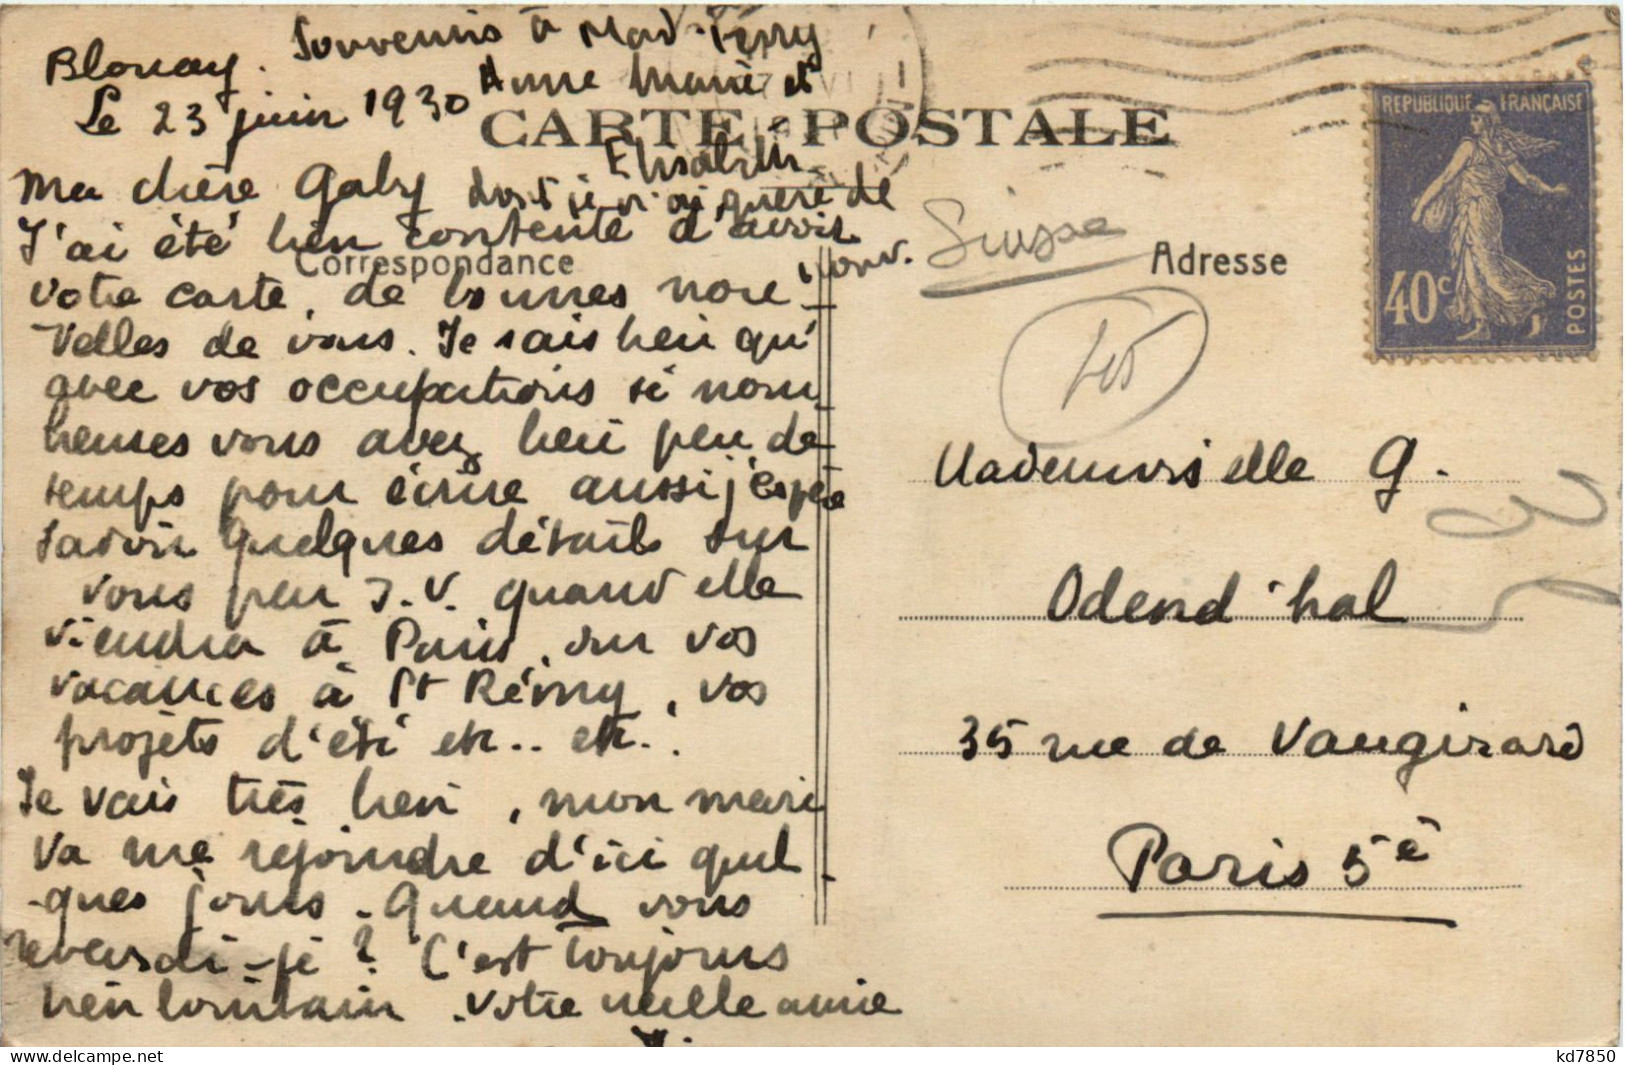 Blonay.
Le 23 juin 1930
Souvenirs à Mad. Ferry
Anne Marie et
Elisabeth
dont je n'ai guère de
nouv.
CARTE - POSTALE
Ma chère Gaby
J'ai été bien contente d'avoir
Correspondance
votre carte, de bonnes nou-
velles de vous. Je sais bien qu'
avec vos occupations si nom-
breuses vous avez bien peu de
temps pour écrire aussi j'espère
savoir quelques détails sur
vous peu J.V. quand elle
viendra à Paris, sur vos
vacances à St Rémy, vos
projets d'été etc.. etc..
Je vais très bien, mon mari
va me rejoindre d'ici quel-
ques jours. Quand vous
reverrai-je? C'est toujours
bien lointain. Votre vieille amie
V.
Suisse
Adresse
REPUBLIQUE FRANÇAISE
40c
POSTES
Mademoiselle G.
Odend'hal
35 rue de Vaugirard
Paris 5e
kd7850